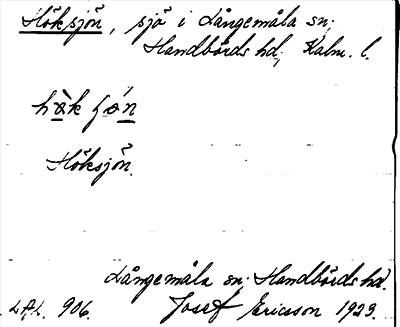 Höksjön, sjö i Långemåla sn;
Handbörds hd; Kalm. l.
Höksjön.
Långemåla sn. Handbörds hd.
LAL. 906. Josef Ericsson 1923.